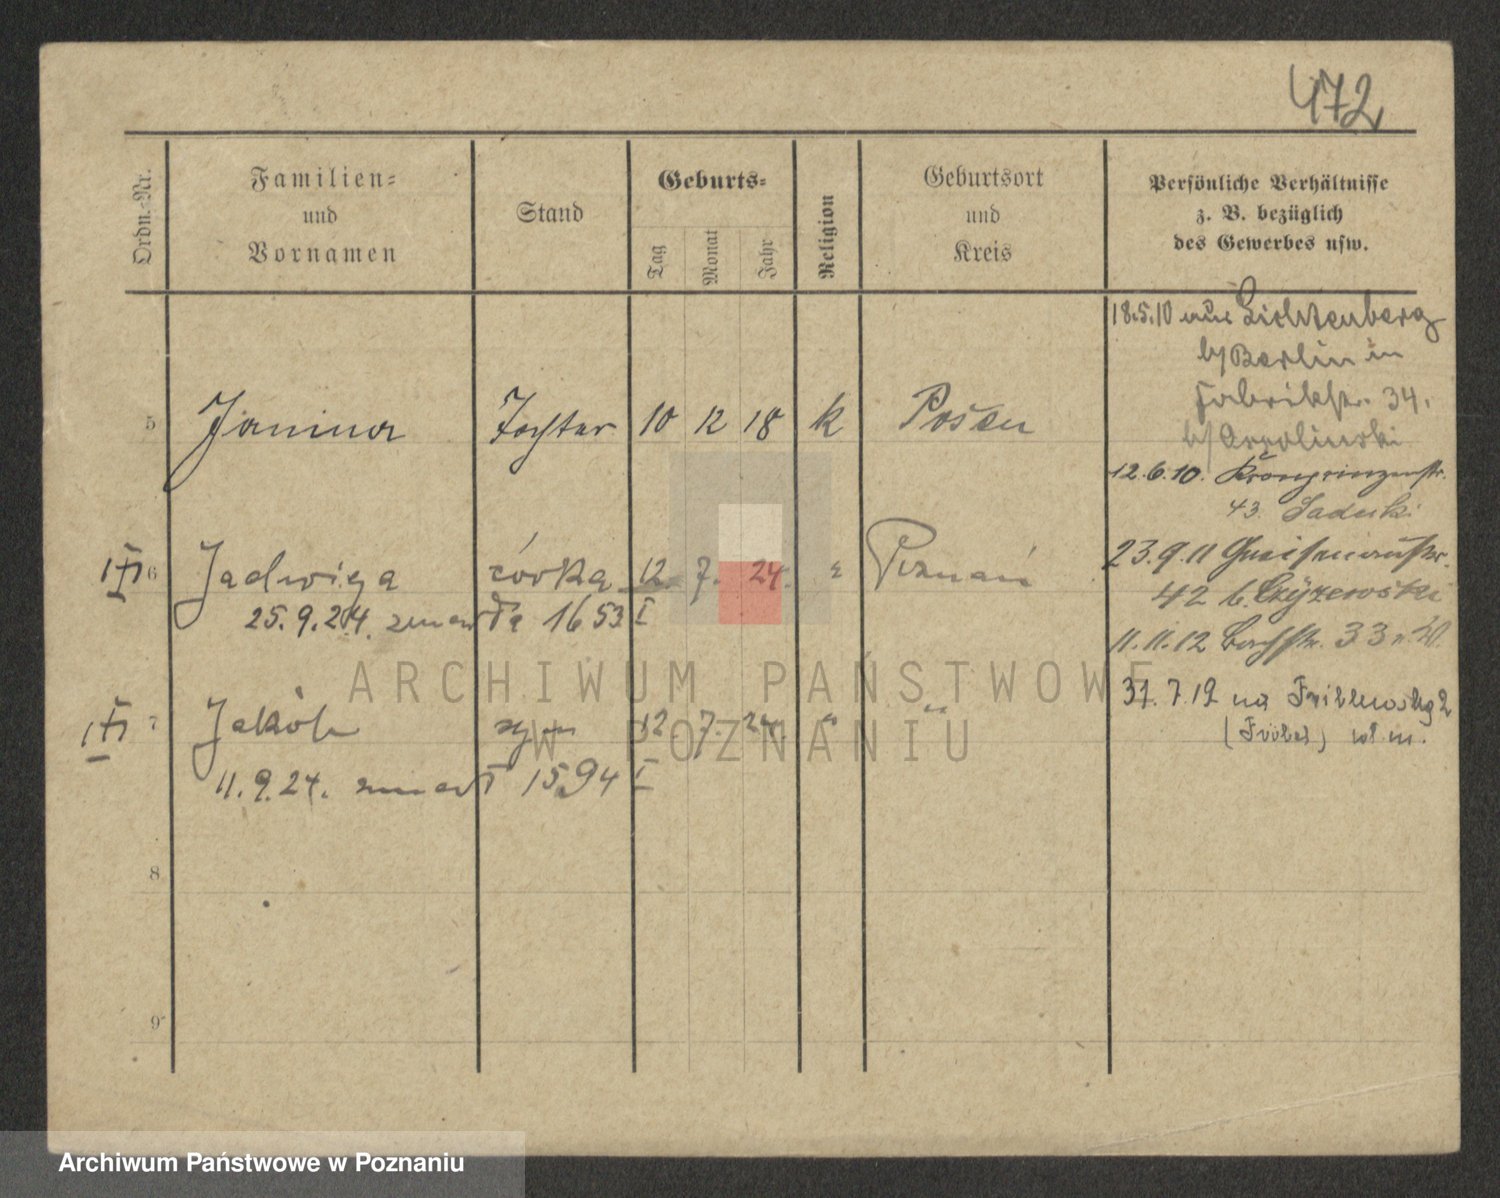 472
Ordn.-Nr.
Familien-
und
Vornamen
Stand
Geburts-
Tag
Monat
Jahr
Religion
Geburtsort
und
Kreis
Persönliche Verhältnisse
z. B. bezüglich
des Gewerbes usw.
18.5.10 aus Lichtenberg
b/Berlin in
Fabrikstr. 34.
5 Janina Tochter 10 12 18 k Posen
12.6.10. Kronprinzenstr.
43.
23.9.11 Gneisenaustr.
6 Jadwiga córka 12. 7. 24. " Poznań
42 b. Czyżewski
25.9.24. zmarła 1653 I
11.11.12 Bachstr. 33
31.7.12 na
7 Jakób syn 12 7. 24. " "
11.9.24. zmarł 1594 I
8
9
ARCHIWUM PAŃSTWOWE
W POZNANIU
Archiwum Państwowe w Poznaniu